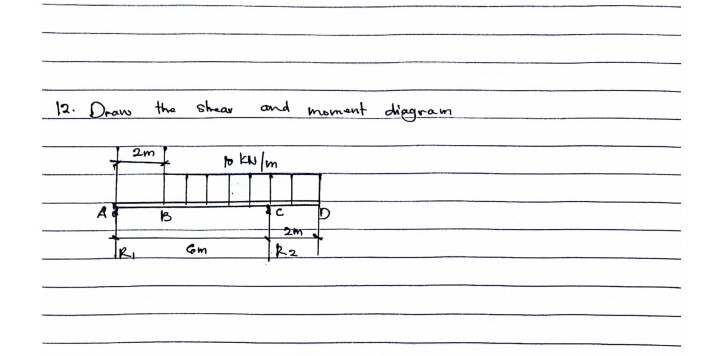 12. Draw the shear and moment diagram
2m
10 kN/m
A B C D
2m
R1 6m R2